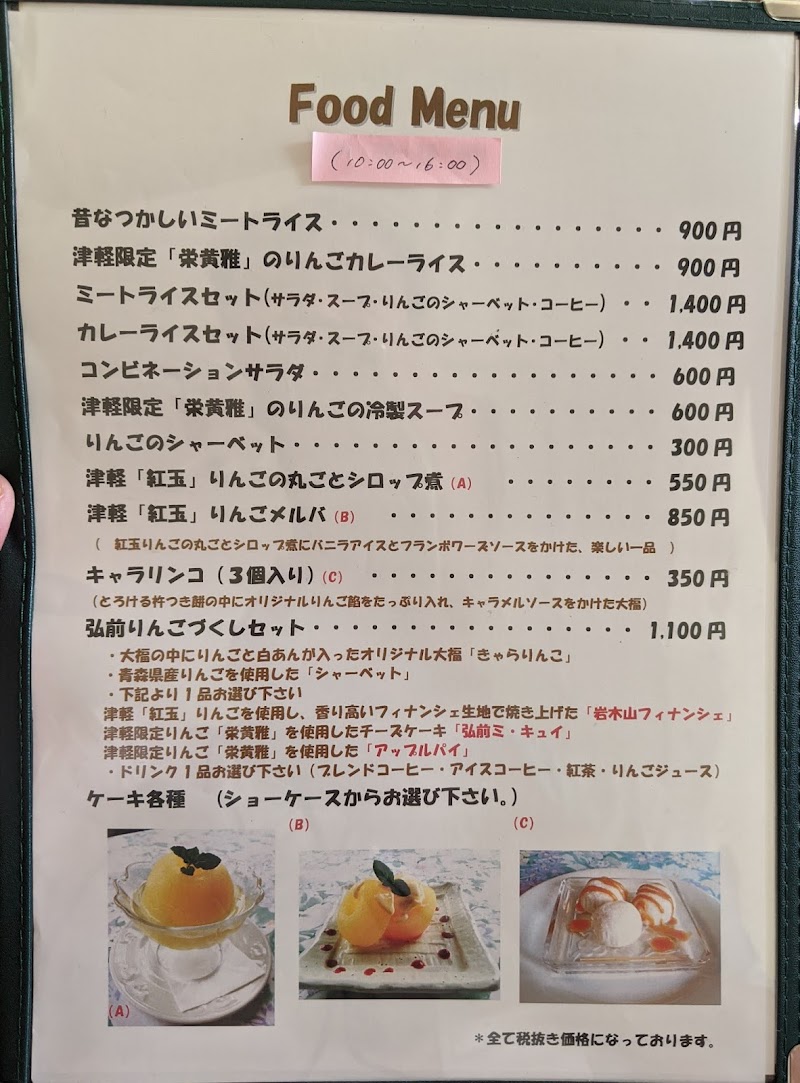 Food Menu
(10:00〜16:00)
昔なつかしいミートライス・・・・・・・・・・・・・・・・・・900円
津軽限定「栄黄雅」のりんごカレーライス・・・・・・・・・・900円
ミートライスセット(サラダ・スープ・りんごのシャーベット・コーヒー)・・1,400円
カレーライスセット(サラダ・スープ・りんごのシャーベット・コーヒー)・・1,400円
コンビネーションサラダ・・・・・・・・・・・・・・・・・・・600円
津軽限定「栄黄雅」のりんごの冷製スープ・・・・・・・・・・600円
りんごのシャーベット・・・・・・・・・・・・・・・・・・・・300円
津軽「紅玉」りんごの丸ごとシロップ煮(A) ・・・・・・・・550円
津軽「紅玉」りんごメルバ(B) ・・・・・・・・・・・・・・850円
( 紅玉りんごの丸ごとシロップ煮にバニラアイスとフランボワーズソースをかけた、楽しい一品 )
キャラリンコ(3個入り)(C) ・・・・・・・・・・・・・・・350円
(とろける杵つき餅の中にオリジナルりんご餡をたっぷり入れ、キャラメルソースをかけた大福)
弘前りんごづくしセット・・・・・・・・・・・・・・・・・1,100円
・大福の中にりんごと白あんが入ったオリジナル大福「きゃらりんこ」
・青森県産りんごを使用した「シャーベット」
・下記より1品お選び下さい
津軽「紅玉」りんごを使用し、香り高いフィナンシェ生地で焼き上げた「岩木山フィナンシェ」
津軽限定りんご「栄黄雅」を使用したチーズケーキ「弘前ミ・キュイ」
津軽限定りんご「栄黄雅」を使用した「アップルパイ」
・ドリンク1品お選び下さい(ブレンドコーヒー・アイスコーヒー・紅茶・りんごジュース)
ケーキ各種 (ショーケースからお選び下さい。)
(B)
(C)
(A)
*全て税抜き価格になっております。